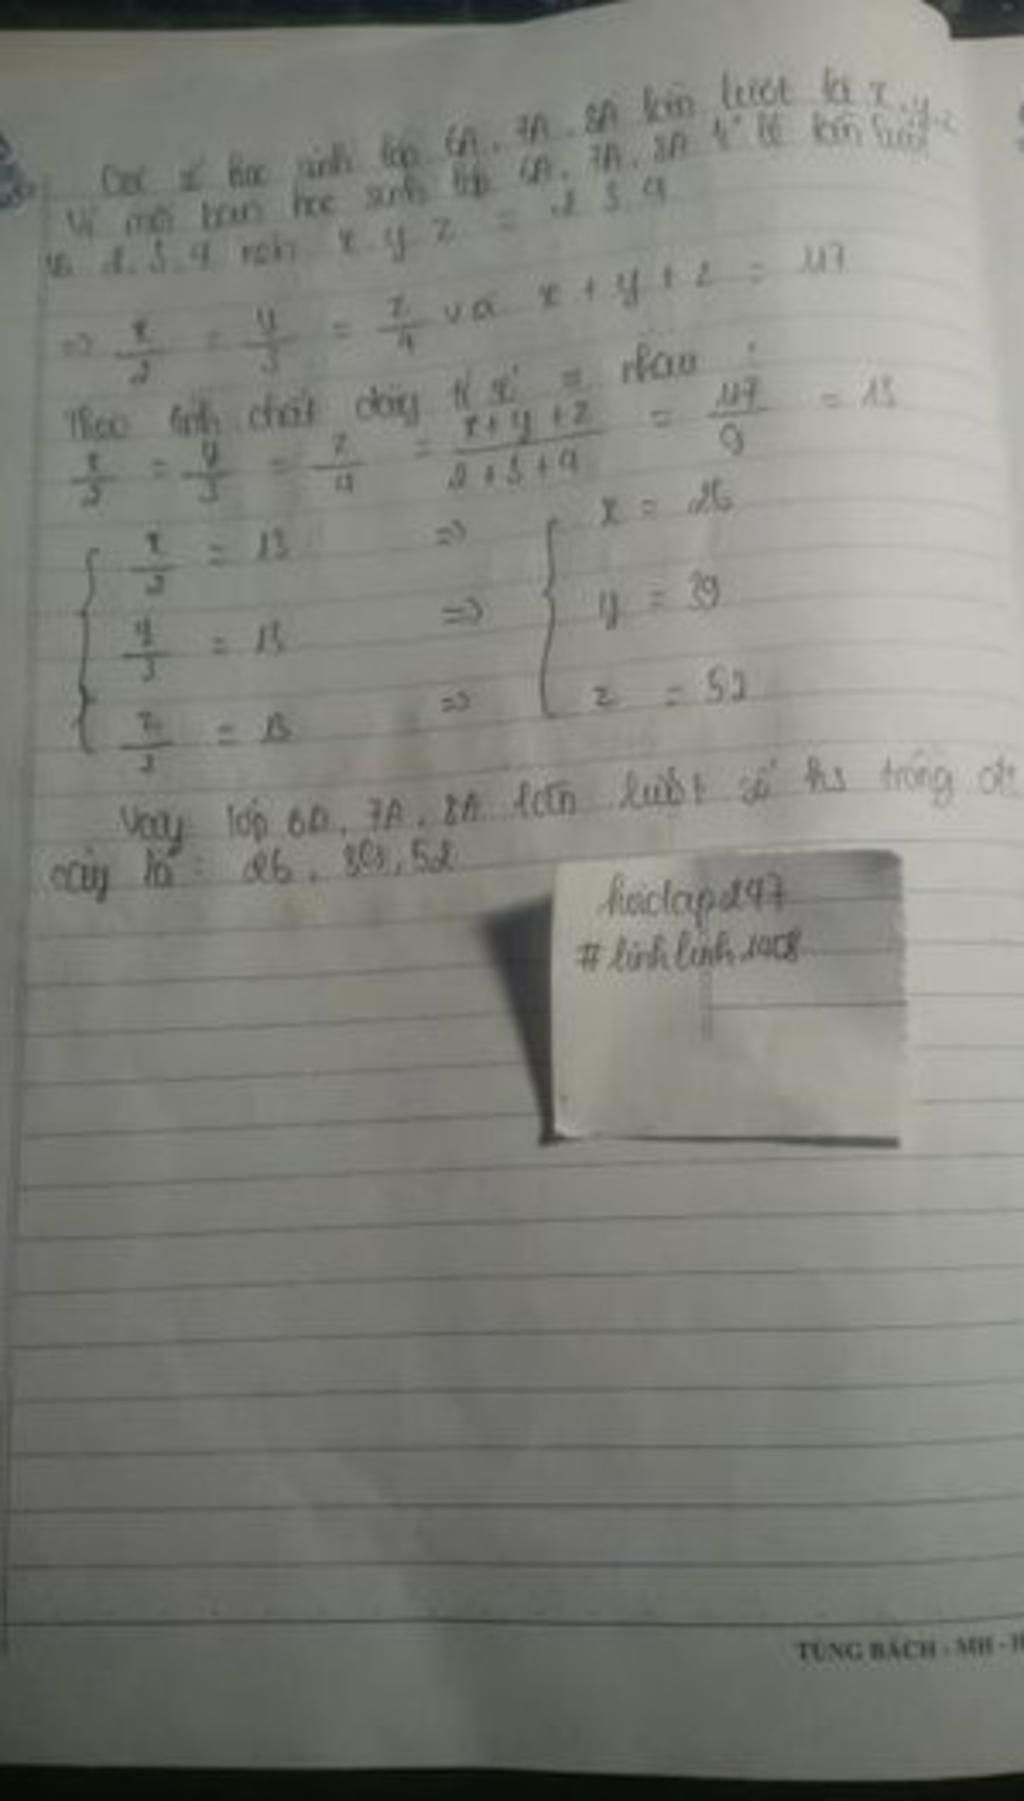 Gọi số học sinh lớp 6A, 7A, 8A lần lượt là x, y, z
Vì mỗi học sinh lớp 6A, 7A, 8A tỉ lệ lần lượt
2, 3, 4 nên x y z = 2 3 4
=> x/2 = y/3 = z/4 và x + y + z = 117
Theo tính chất dãy tỉ số = nhau :
x/2 = y/3 = z/4 = x+y+z/2+3+4 = 117/9 = 13
x/2 = 13 => x = 26
y/3 = 13 => y = 39
= 13 => z = 52
Vậy lớp 6A, 7A, 8A lần lượt số hs trồng
cây là : 26, 52
hoidap247
#linhlinh
TÙNG BÁCH - MH -